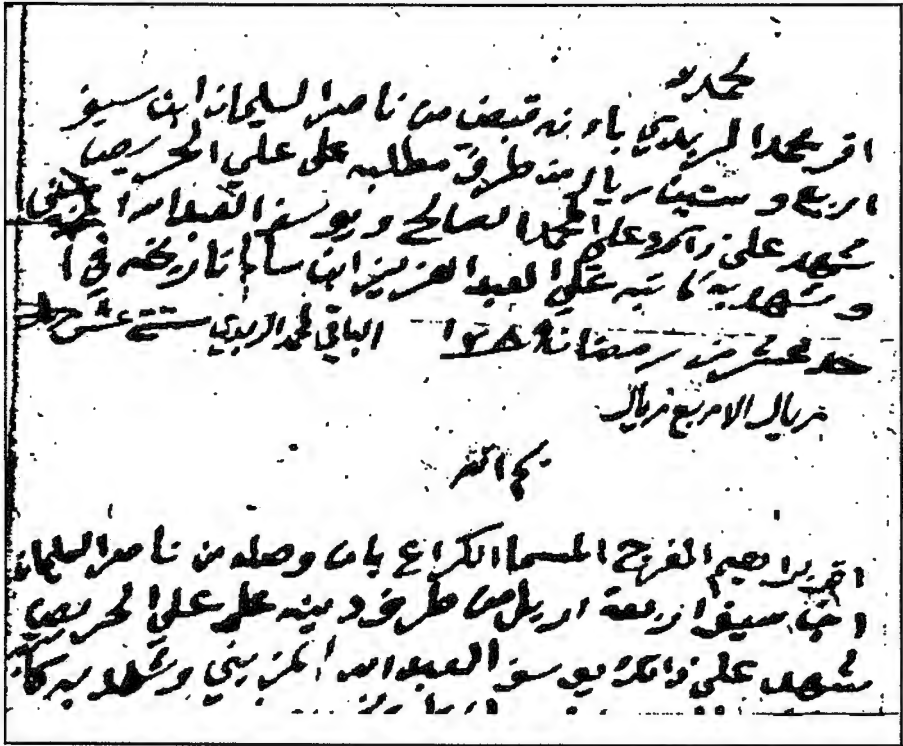 الحمد لله
اقر محمد الربدي باءنه قبض من ناصر السليمان ابن سيف
اربع وستين ريال من طرف مطلبه على علي الحريص
شهد على ذالك علي المحمد الصالح ويوسف العبدالله المزيني
وشهد به كاتبه علي العبدالعزيز ابن سالم تاريخه في ا
حد عشر من رمضان الباقي لمحمد الربدي ستة عشر
ريال الا ربع ريال
اقر ابراهيم الفرج المسما الكراع بان وصله من ناصر السليمان
ابن سيف اربعة اريل من طرف دينه على علي الحريص
شهد على ذالك يوسف العبدالله المزيني وشهد به كا